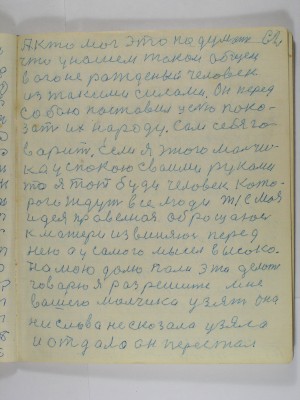 А кто мог это подумать св
что у нашем таком общем
вагоне рожденый человек
из такеими силами. Он перед
собою поставил устю пока-
зать их народу. Сам себя го-
варит. Если я этого мальчи-
ка успокою своими руками
то я тот буди человек кото-
рого ждут все люди Т/Е моя
идея правеная оброщаюся
к матери извиняюсь перед
нею а у самого мысл высоко.
на мою долю пали эта делот
говарю я разрешите мне
вашего малчика узят она
ни слова не сказала узяла
и отдала он перестал